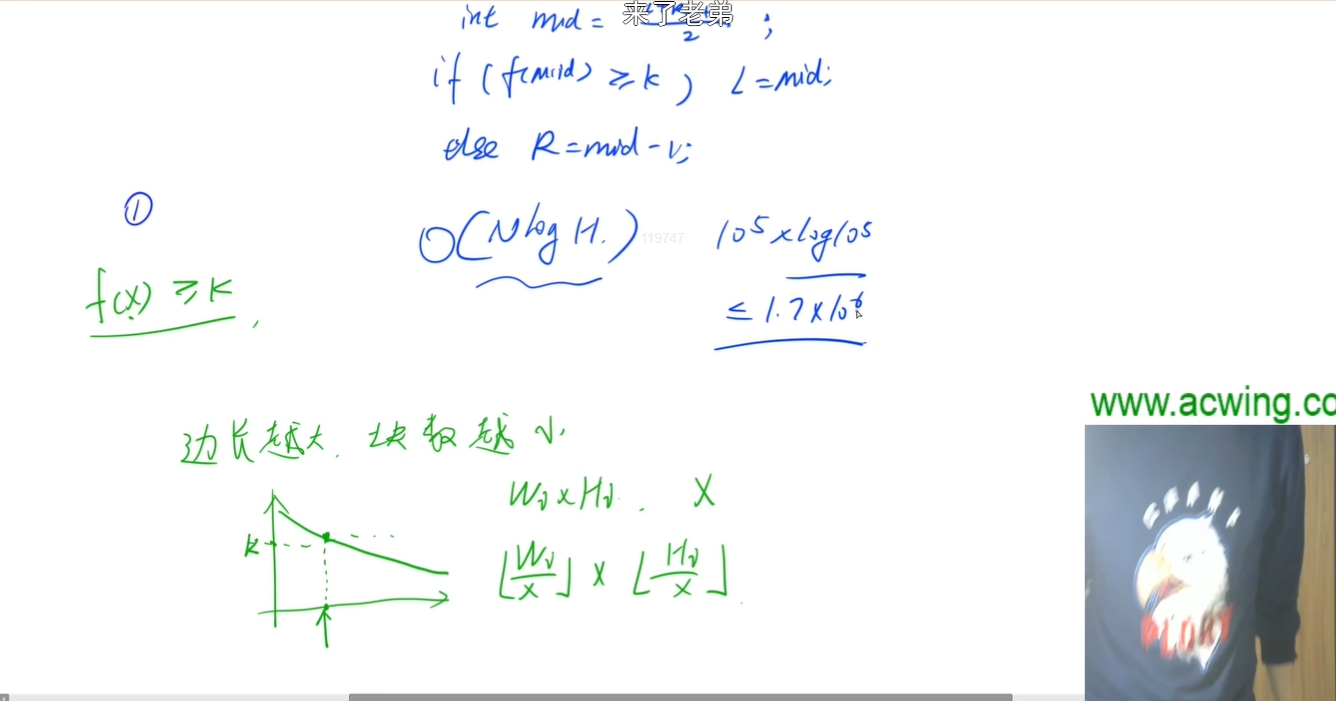 来了老弟
int mid = 2 ;
if (f(mid) ≥ k) L = mid;
else R = mid - 1;
①
O(N log H.)
119747
10^5 × log10^5
f(x) ≥ K,
≤ 1.7 × 10^6
www.acwing.co
边长越大. 块数越小.
Wi × Hi. X
K
⌊Wi/X⌋ × ⌊Hi/X⌋
GLORY